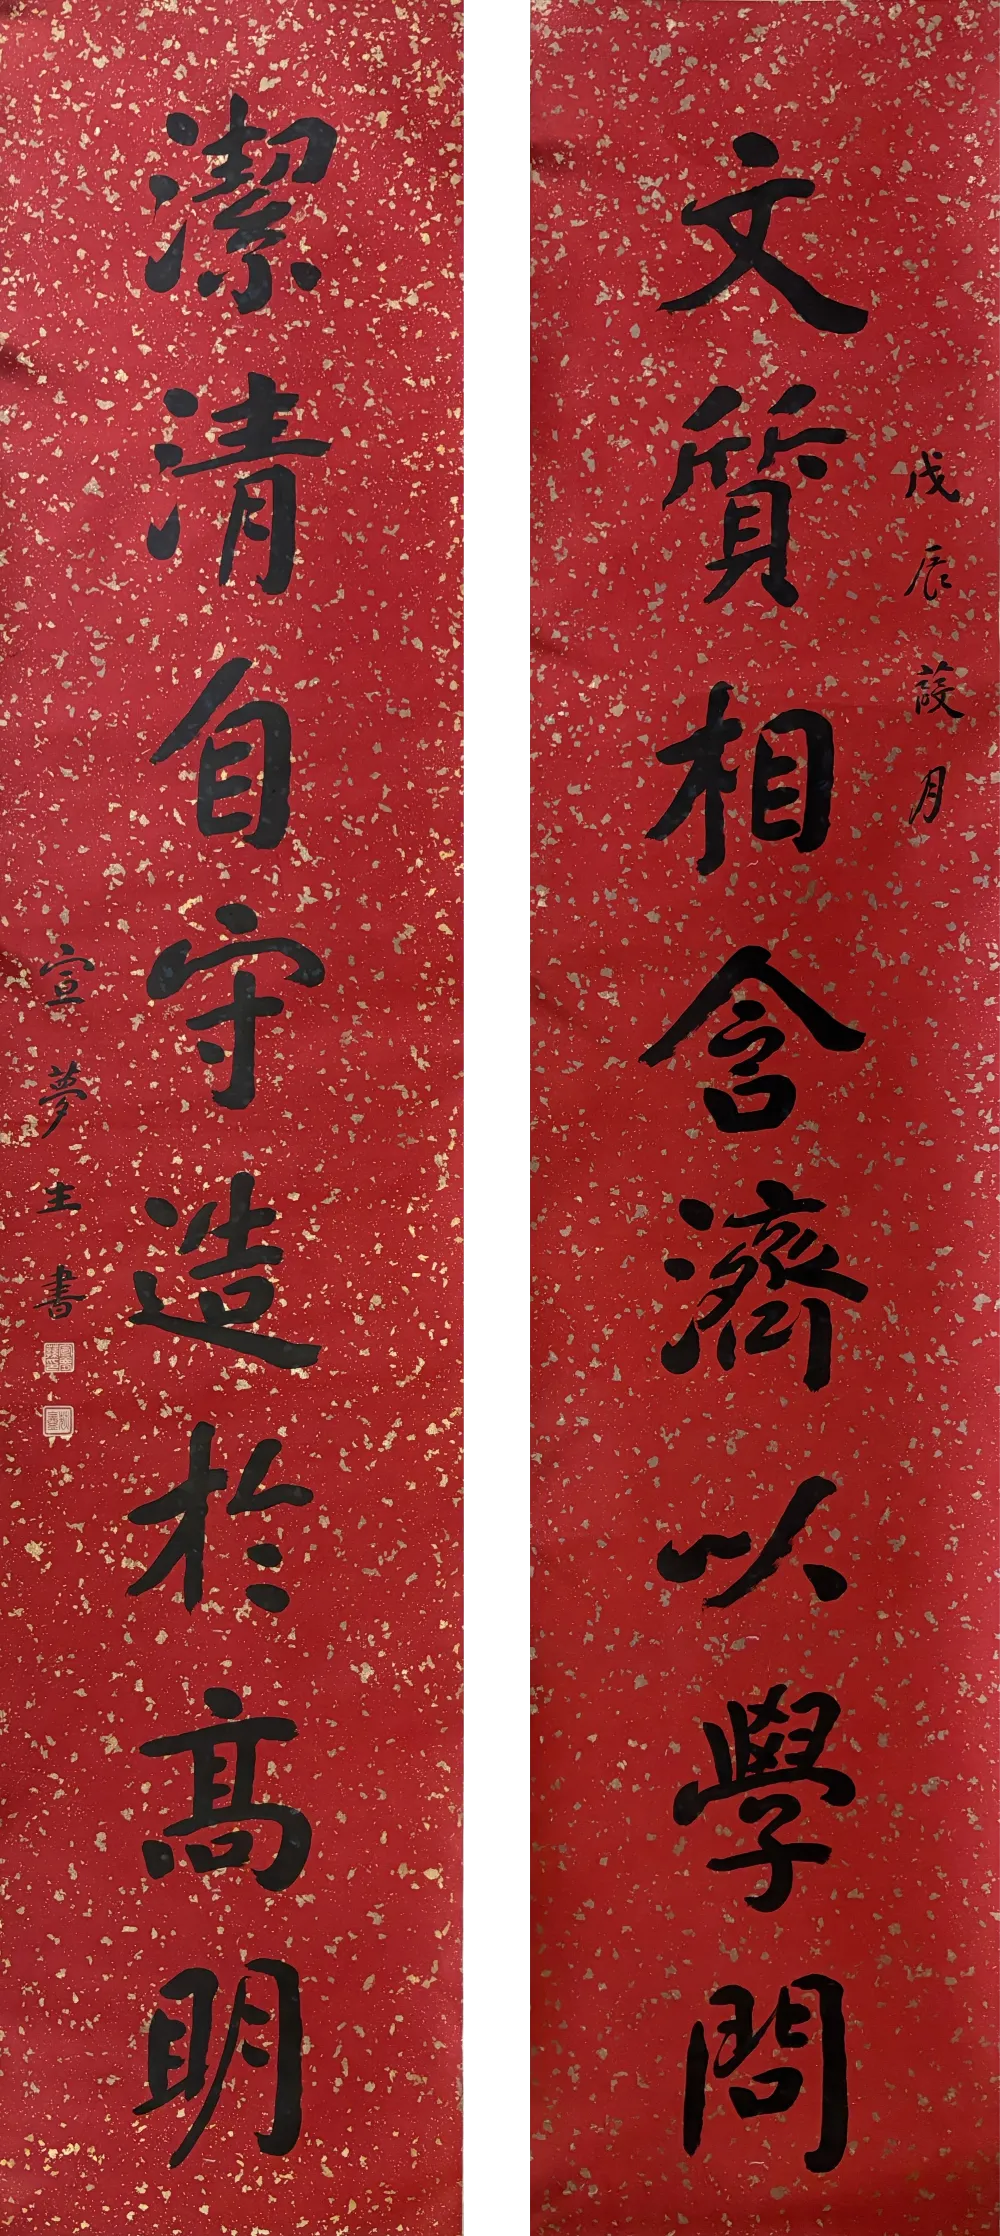 戊辰葭月
文質相含濟以學問
潔清自守造於高明
宣夢主書